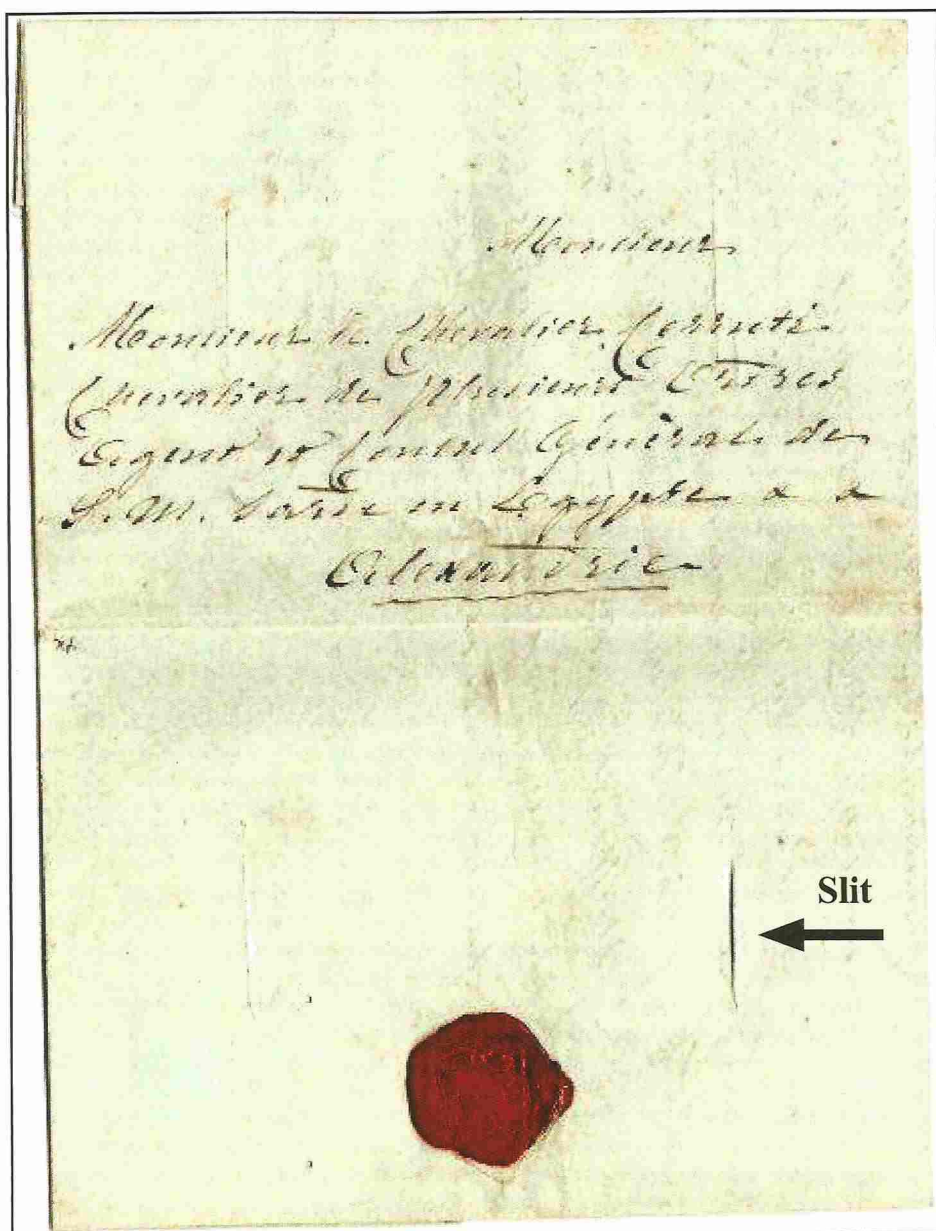 Monsieur
Monsieur le Chevalier Cerruti
Chevalier de plusieurs Ordres
Agent et Consul Général de
S. M. Sarde en Egypte & &
Alexandrie
Slit